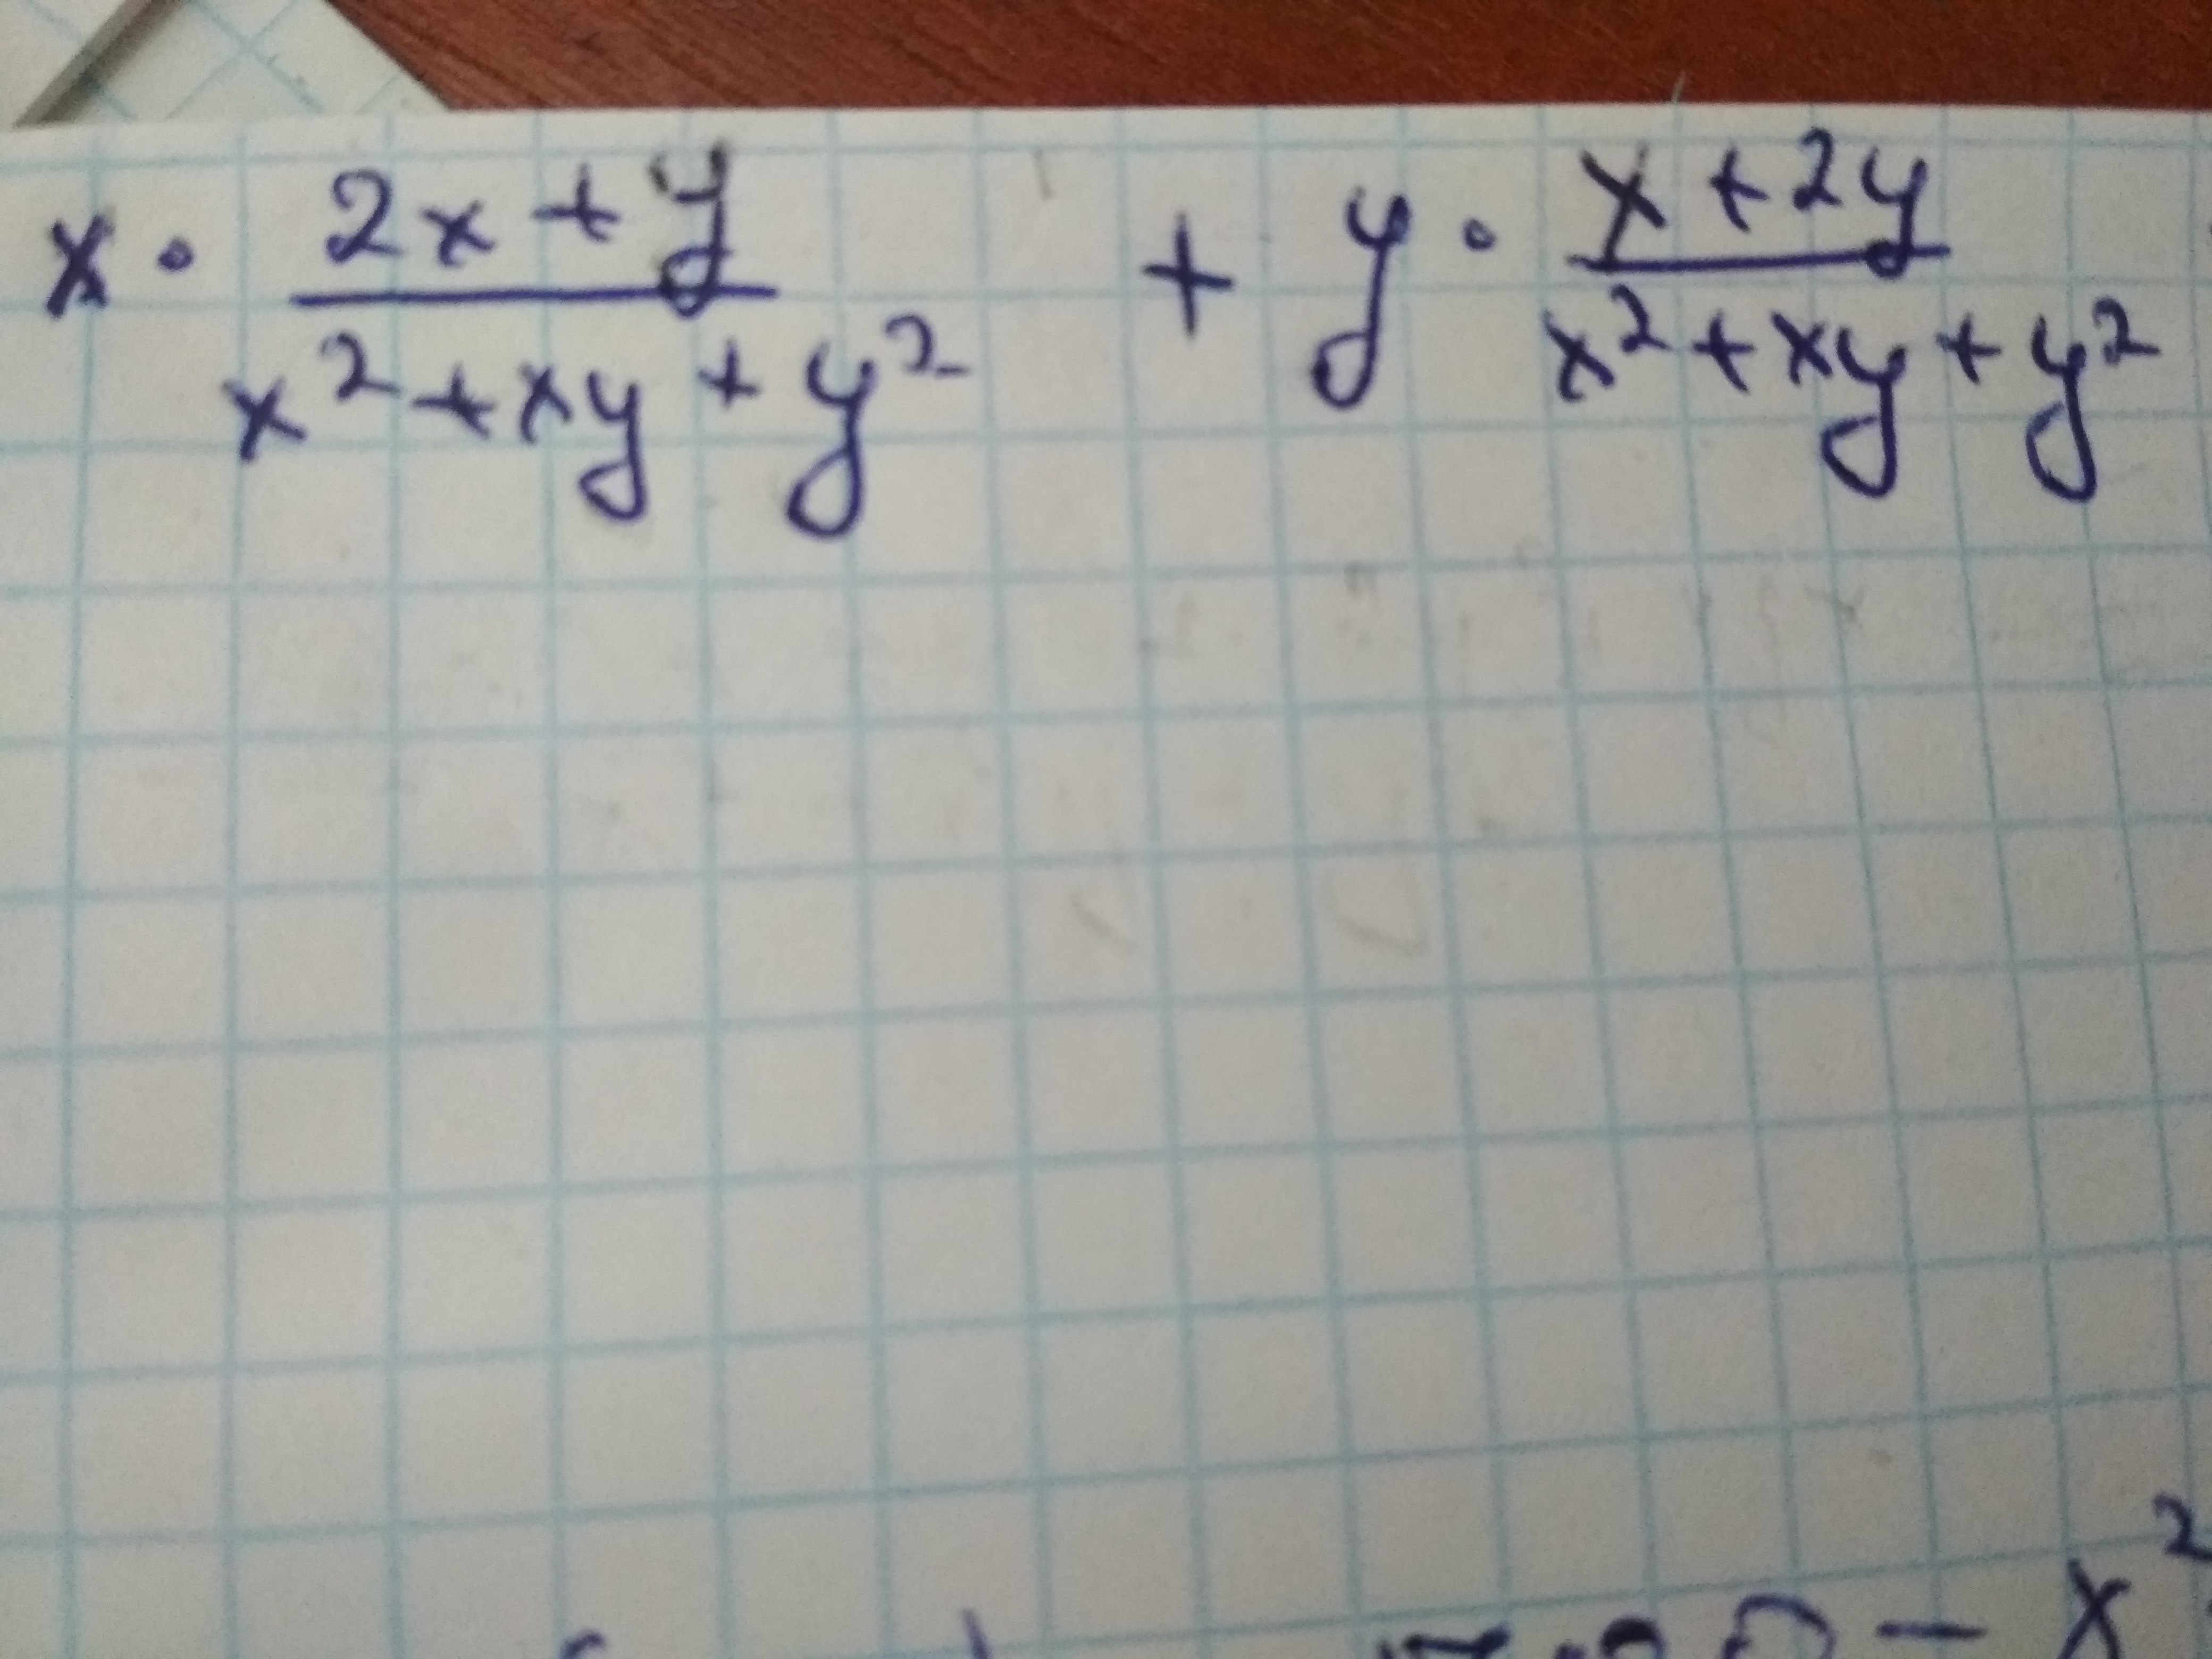 x · (2x + y)/(x² + xy + y²) + y · (x + 2y)/(x² + xy + y²)
- x²